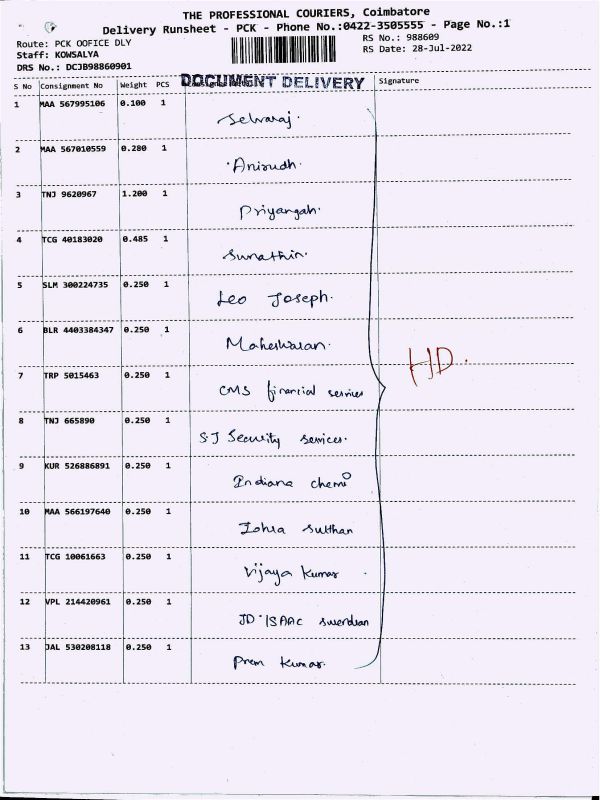 THE PROFESSIONAL COURIERS, Coimbatore
Delivery Runsheet - PCK - Phone No.:0422-3505555 - Page No.:1
Route: PCK OOFICE DLY
RS No.: 988609
Staff: KOWSALYA
RS Date: 28-Jul-2022
DRS No.: DCJB98860901
DOCUMENT DELIVERY
S No Consignment No Weight PCS Signature
1 MAA 567995106 0.100 1 Selvaraj.
2 MAA 567010559 0.280 1 Anirudh.
3 TNJ 9620967 1.200 1 Priyangah.
4 TCG 40183020 0.485 1
5 SLM 300224735 0.250 1 Leo Joseph.
6 BLR 4403384347 0.250 1 Maheshwaran.
HD.
7 TRP 5015463 0.250 1 CMS financial services
8 TNJ 665890 0.250 1 S.J Security services.
9 KUR 526886891 0.250 1 Indiana chemi
10 MAA 566197640 0.250 1 Sulthan
11 TCG 10061663 0.250 1 Vijaya Kumar
12 VPL 214420961 0.250 1 JD ISAAC
13 JAL 530208118 0.250 1 Prem Kumar.